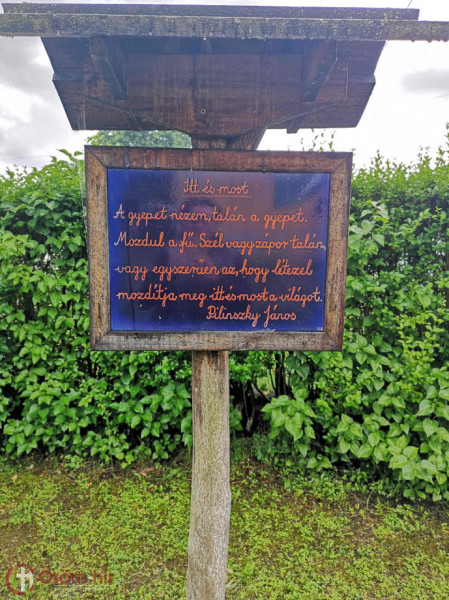 Itt és most
A gyepet nézem, talán a gyepet.
Mozdul a fű. Szél vagy zápor talán,
vagy egyszerűen az, hogy létezel
mozdítja meg itt és most a világot.
Pilinszky János